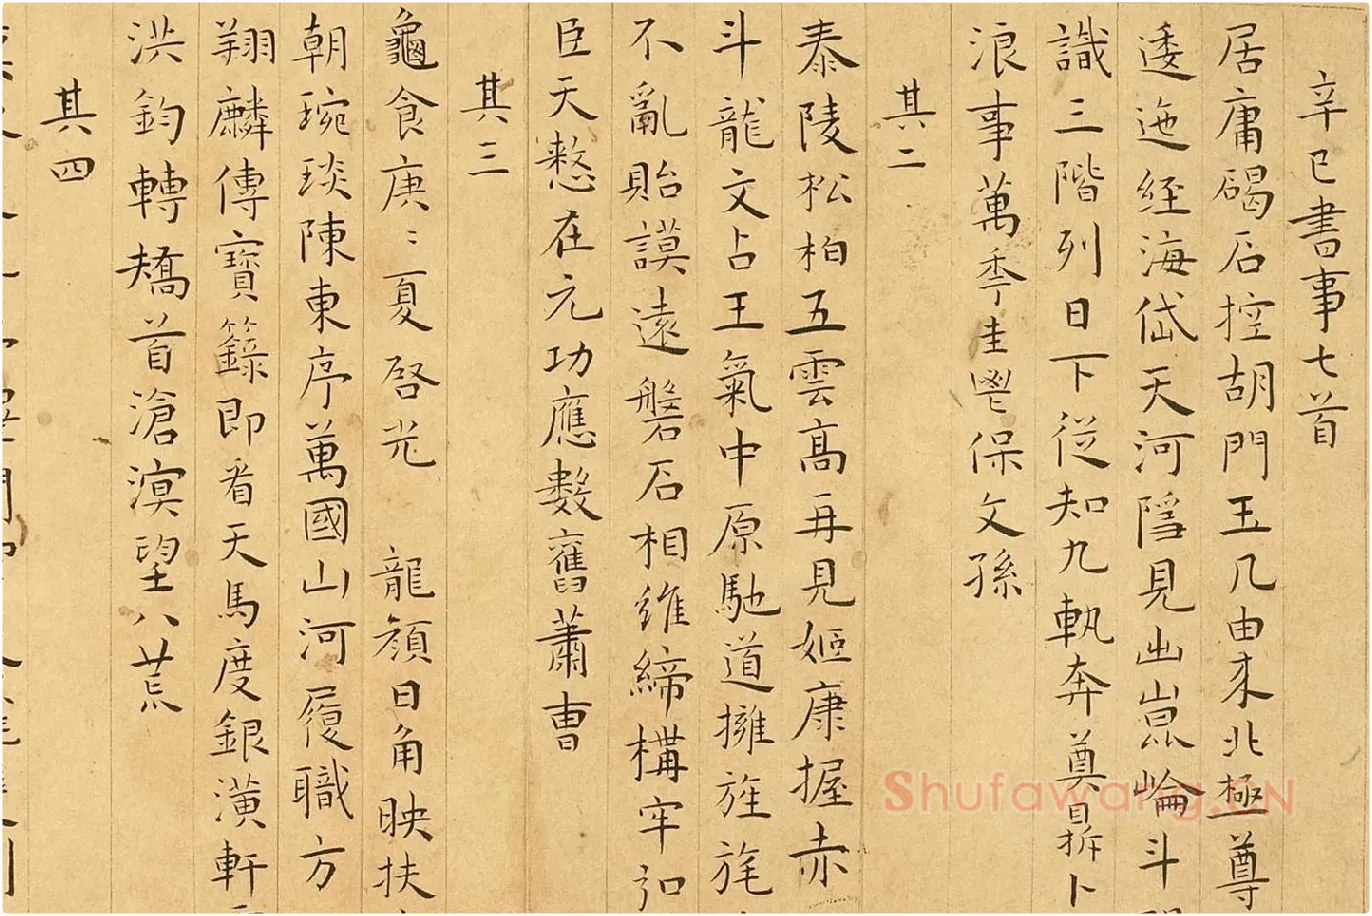 辛巳書事七首
居庸碣石控胡門玉几由来北極尊
逶迤經海岱天河隱見出崑崘斗
識三階列日下從知九執奔莫拆卜
浪事萬季圭鬯保文孫
其二
泰陵松柏五雲高再見姬康握赤
斗龍文占王氣中原馳道擁旌旄
不亂貽謨遠磐石相維締構牢弘
臣天憖在元功應數舊蕭曹
其三
龜食庚:夏啓光 龍顔日角映扶
朝琬琰陳東序萬國山河履職方
翔麟傳寶籙即看天馬度銀潢軒
洪鈞轉矯首滄溟望八荒
其四
Shufawang.CN